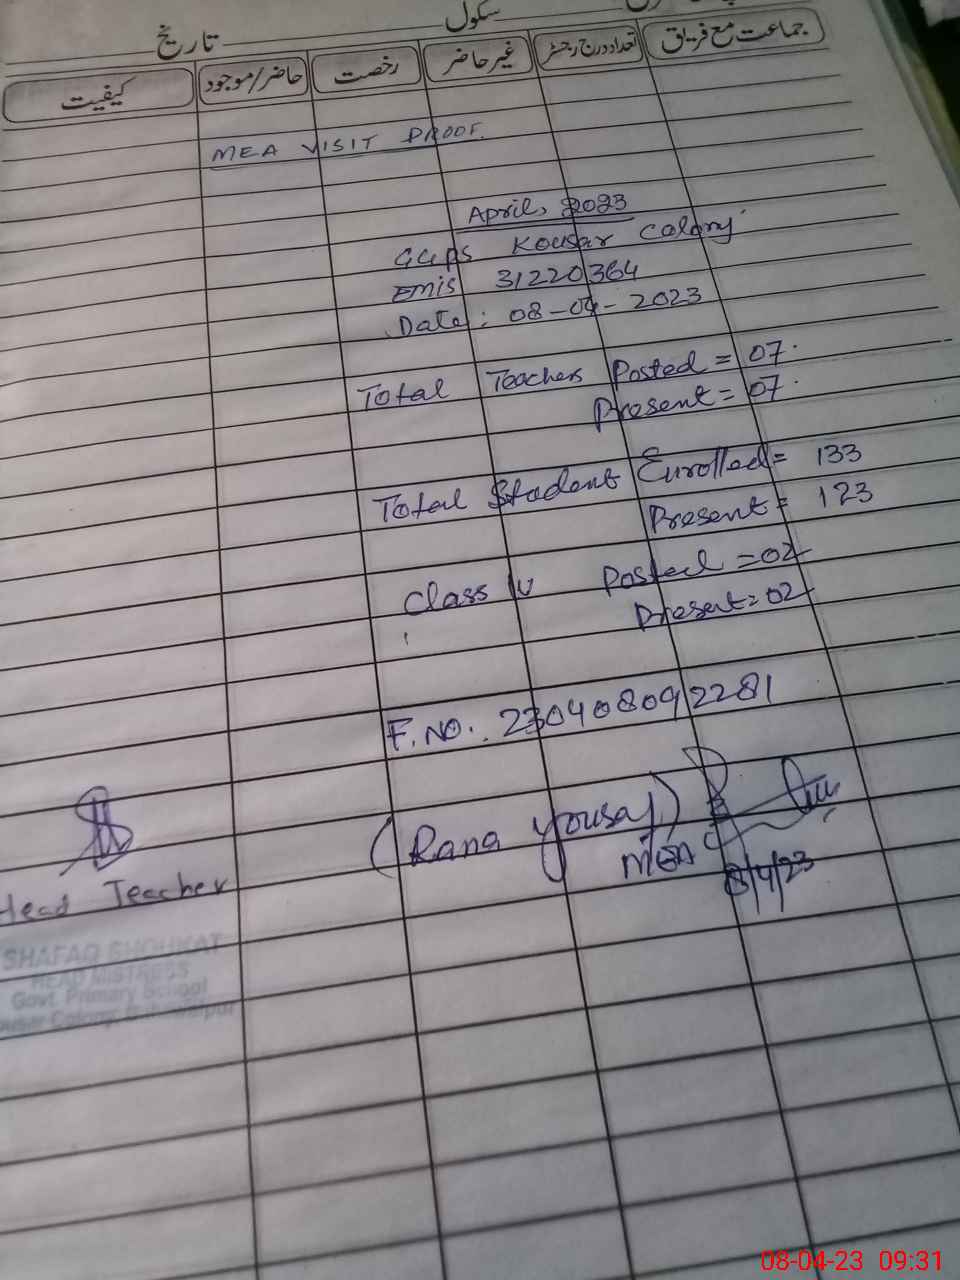 سکول تاریخ
جماعت مع فریق تعداد درج رجسٹر غیر حاضر رخصت حاضر/موجود کیفیت
MEA VISIT PROOF.
April, 2023
GGPS Kousar Colony
EMIS 31220364
Date: 08-04-2023
Total Teachers Posted = 07.
Present = 07.
Total Student Enrolled = 133
Present = 123
Class IV Posted = 02
Present = 02
F. NO. 230408092281
(Rana Yousaf)
MEA
8/4/23
Head Teacher
SHAFAQ SHOUKAT
HEAD MISTRESS
Govt. Primary School
Kousar Colony, Bahawalpur
08-04-23 09:31